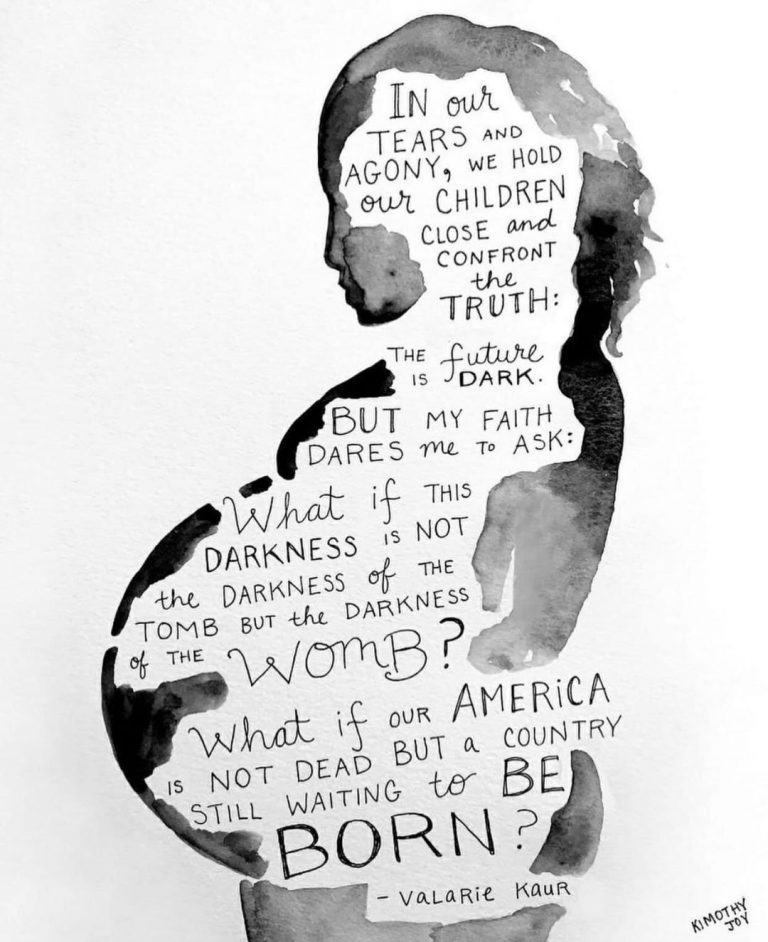 IN our
TEARS AND
AGONY, WE HOLD
our CHILDREN
CLOSE and
CONFRONT
the
TRUTH:
THE future
IS DARK.
BUT MY FAITH
DARES me TO ASK:
What if THIS
DARKNESS IS NOT
the DARKNESS of THE
TOMB BUT the DARKNESS
of THE WOMB?
What if OUR AMERiCA
IS NOT DEAD BUT a COUNTRY
STILL WAITING to BE
BORN?
- VaLaRie KauR
KIMOTHY
JOY